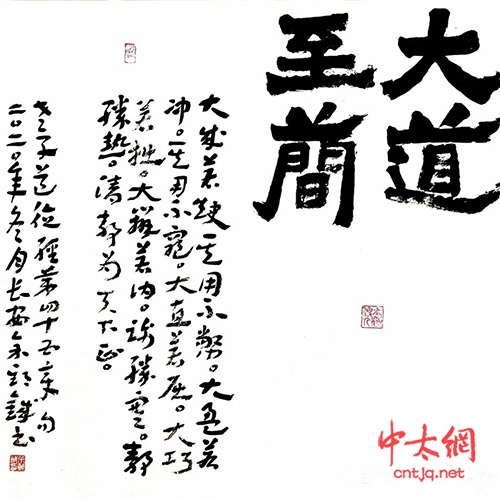 大道
至簡
大成若缺其用不弊。大盈若
冲。其用不窮。大直若屈。大巧
若拙。大辯若内。躁勝寒。靜
勝熱。清靜为天下正。
老子道德經第四十五章句
二〇二〇年冬月長安
中太網
cntjq.net